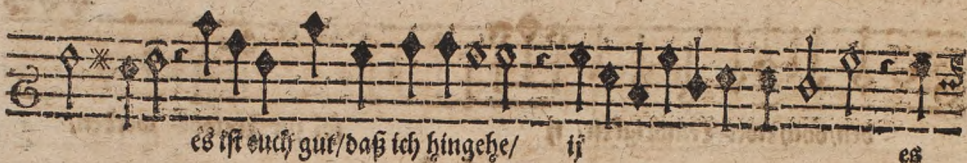 es ist euch gut/daß ich hingehe/ ij es